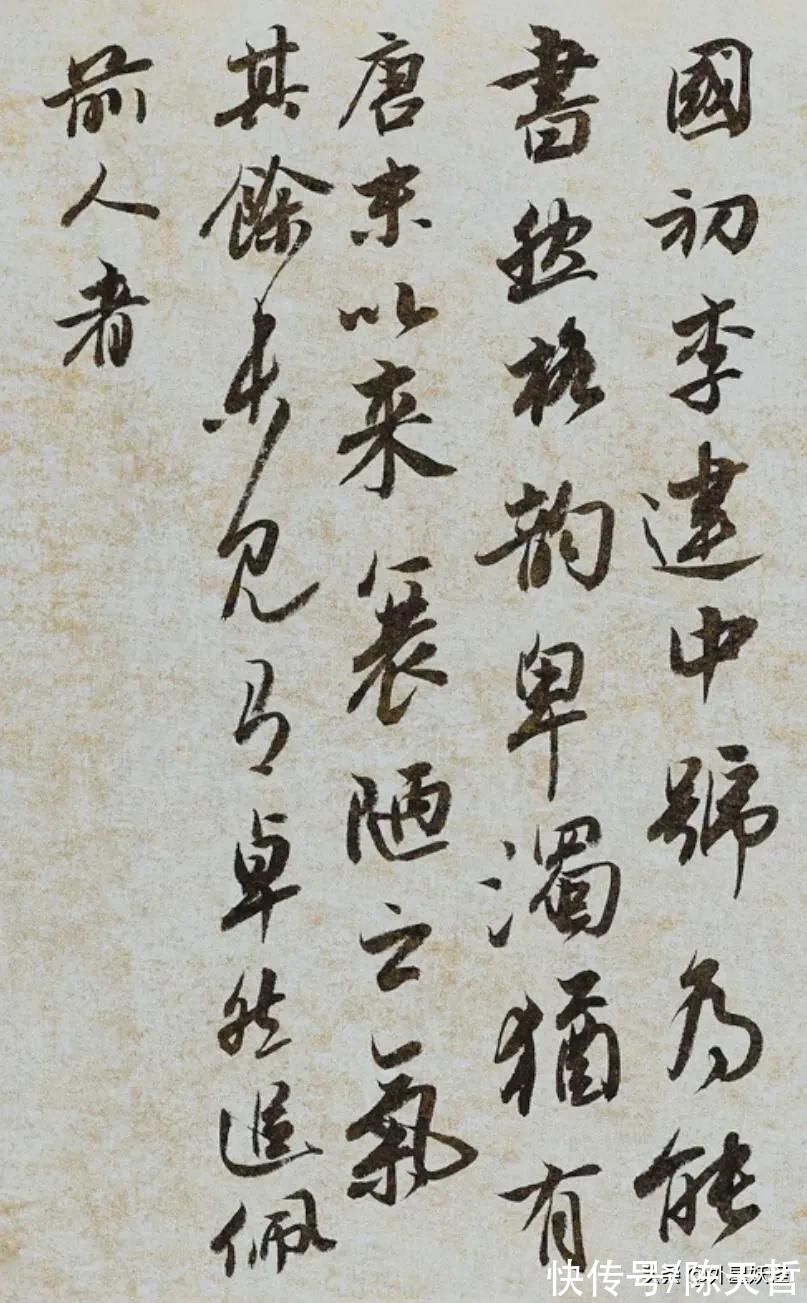 國初李建中號為能
書然格韵卑濁猶有
唐末以来衰陋之氣
其餘未見有卓然追佩
前人者
快传号/陈昊哲